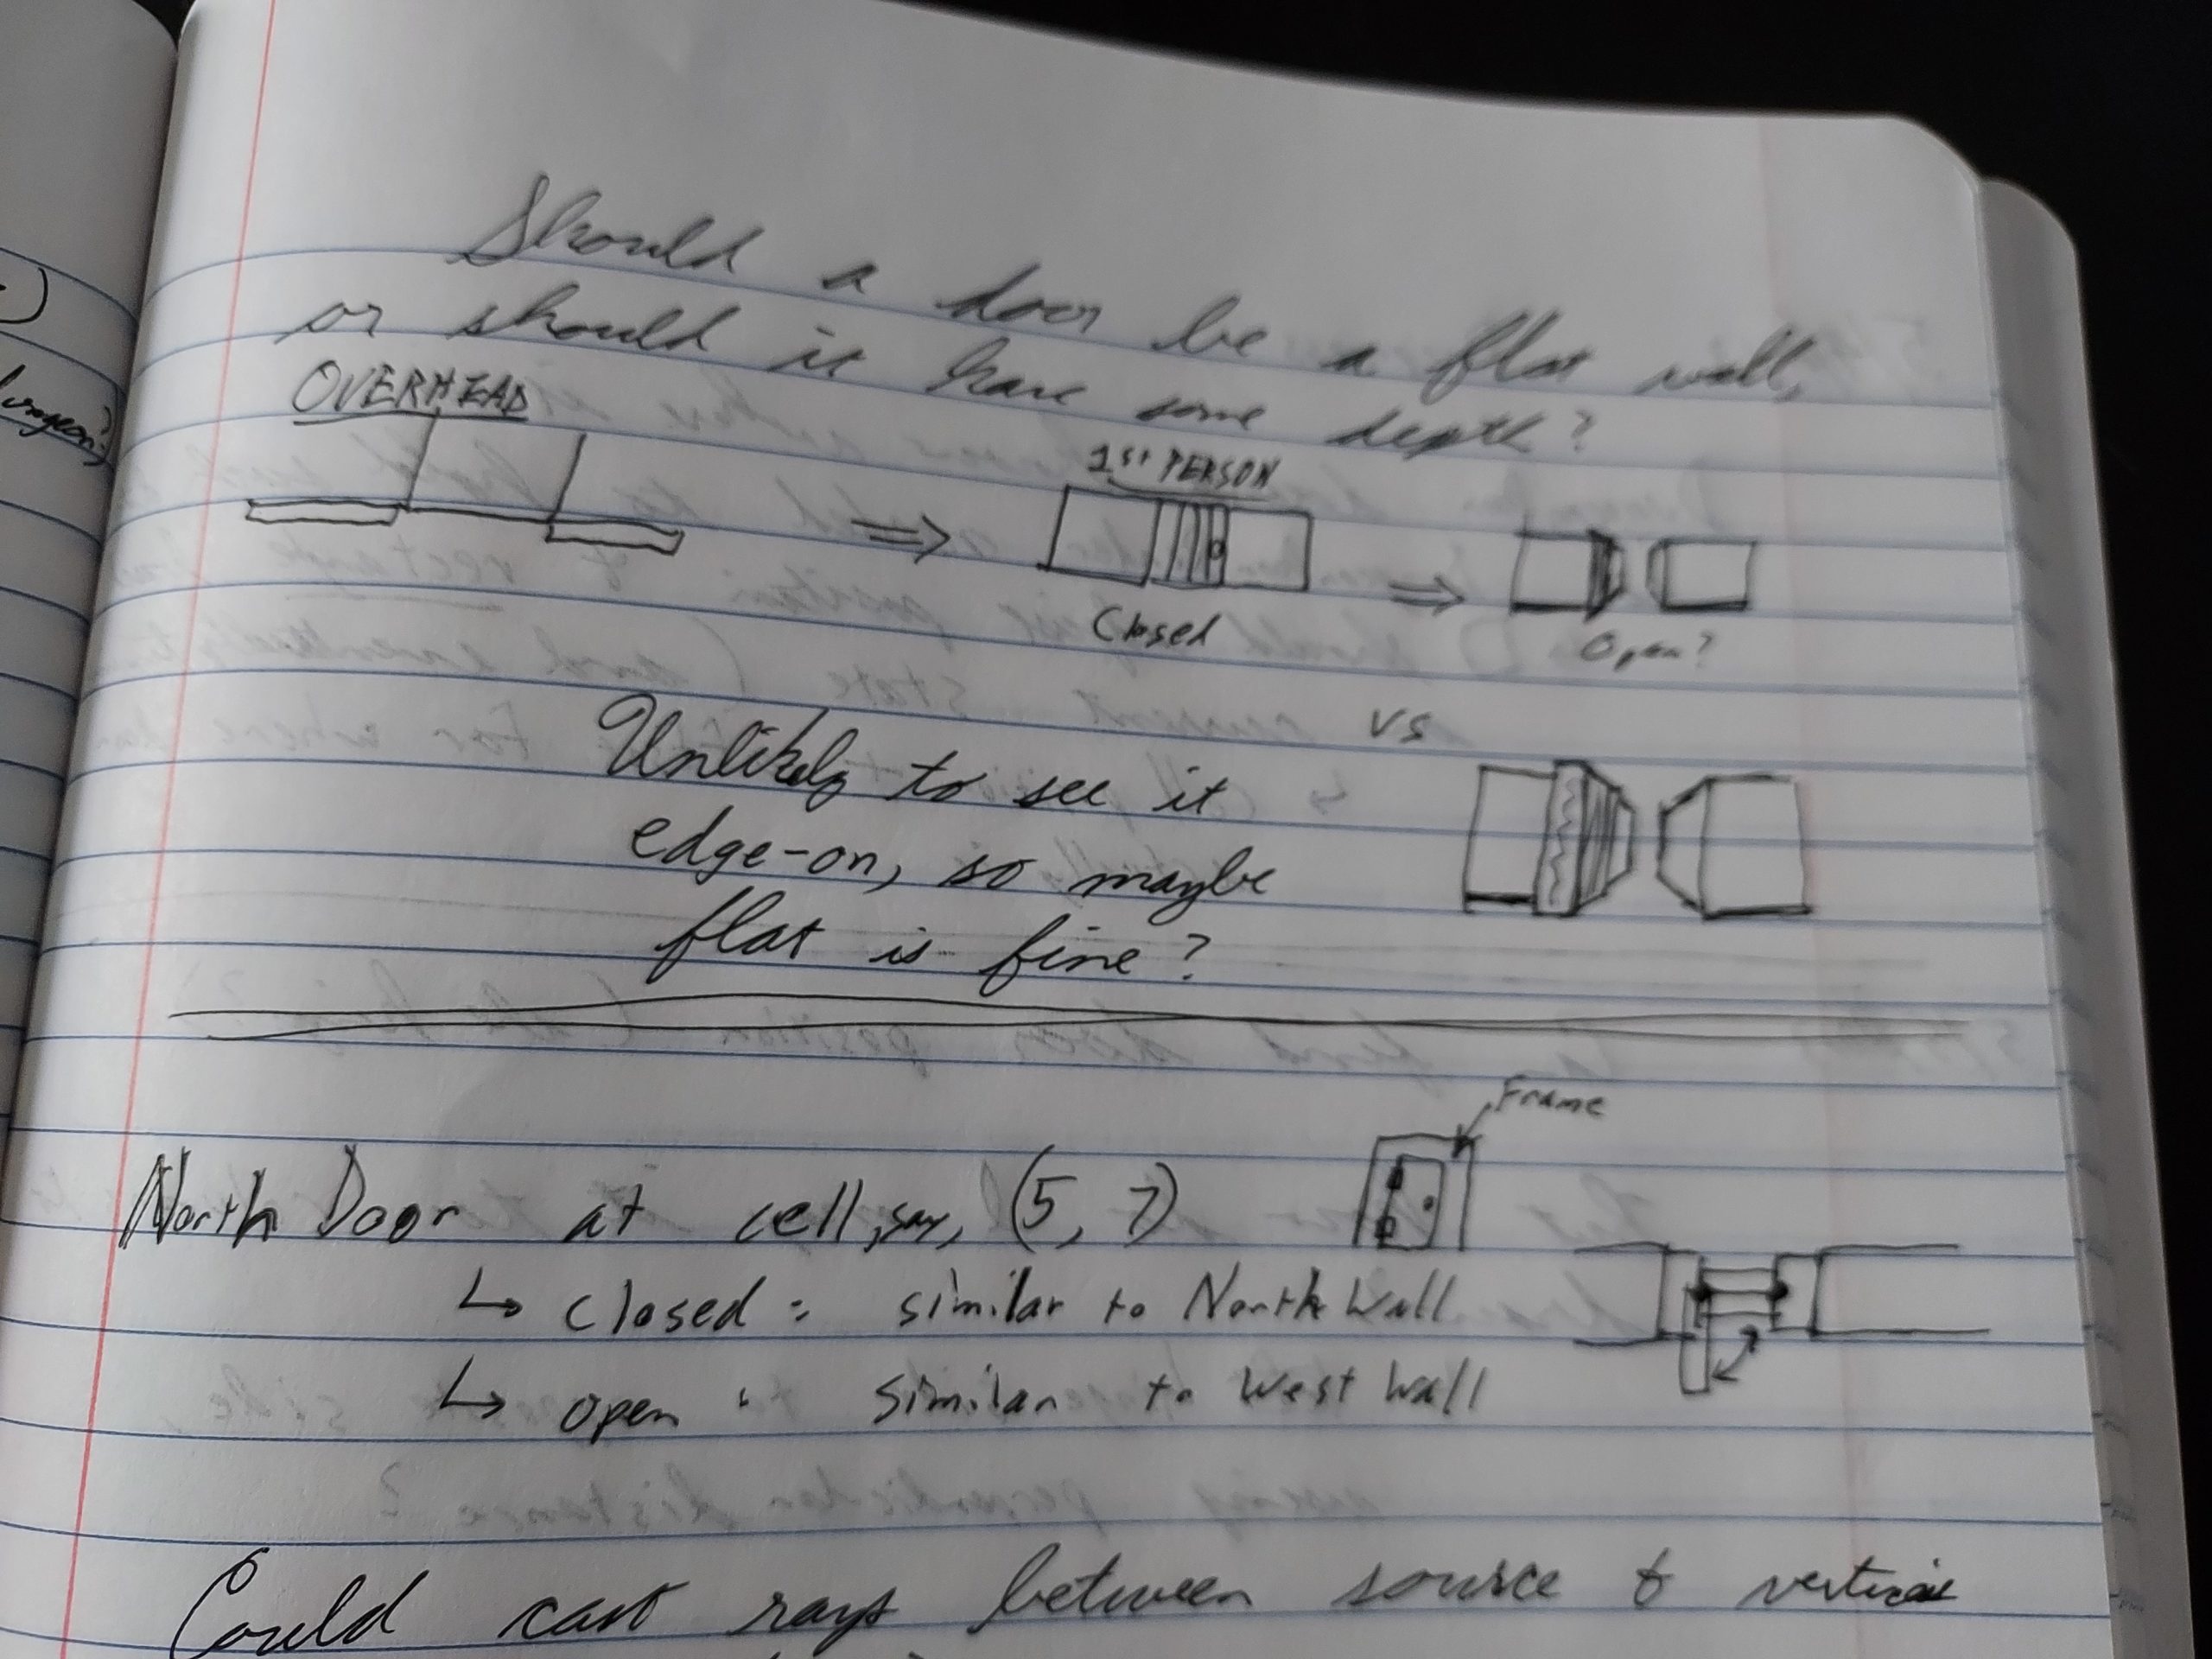 Should a door be a flat wall,
or should it have some depth?
OVERHEAD
1st PERSON
Closed
Open?
vs
Unlikely to see it
edge-on, so maybe
flat is fine?
Frame
North Door at cell, say, (5, 7)
↳ closed: similar to North Wall
↳ open: similar to West Wall
Could cast rays between source &